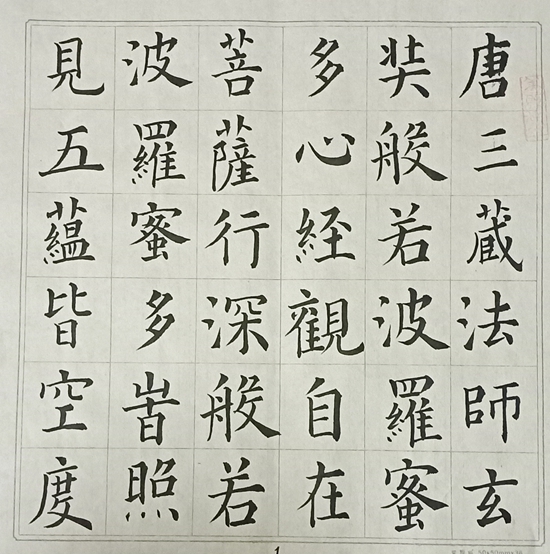 唐三藏法師玄
奘般若波羅蜜
多心經觀自在
菩薩行深般若
波羅蜜多旹照
見五蘊皆空度
1